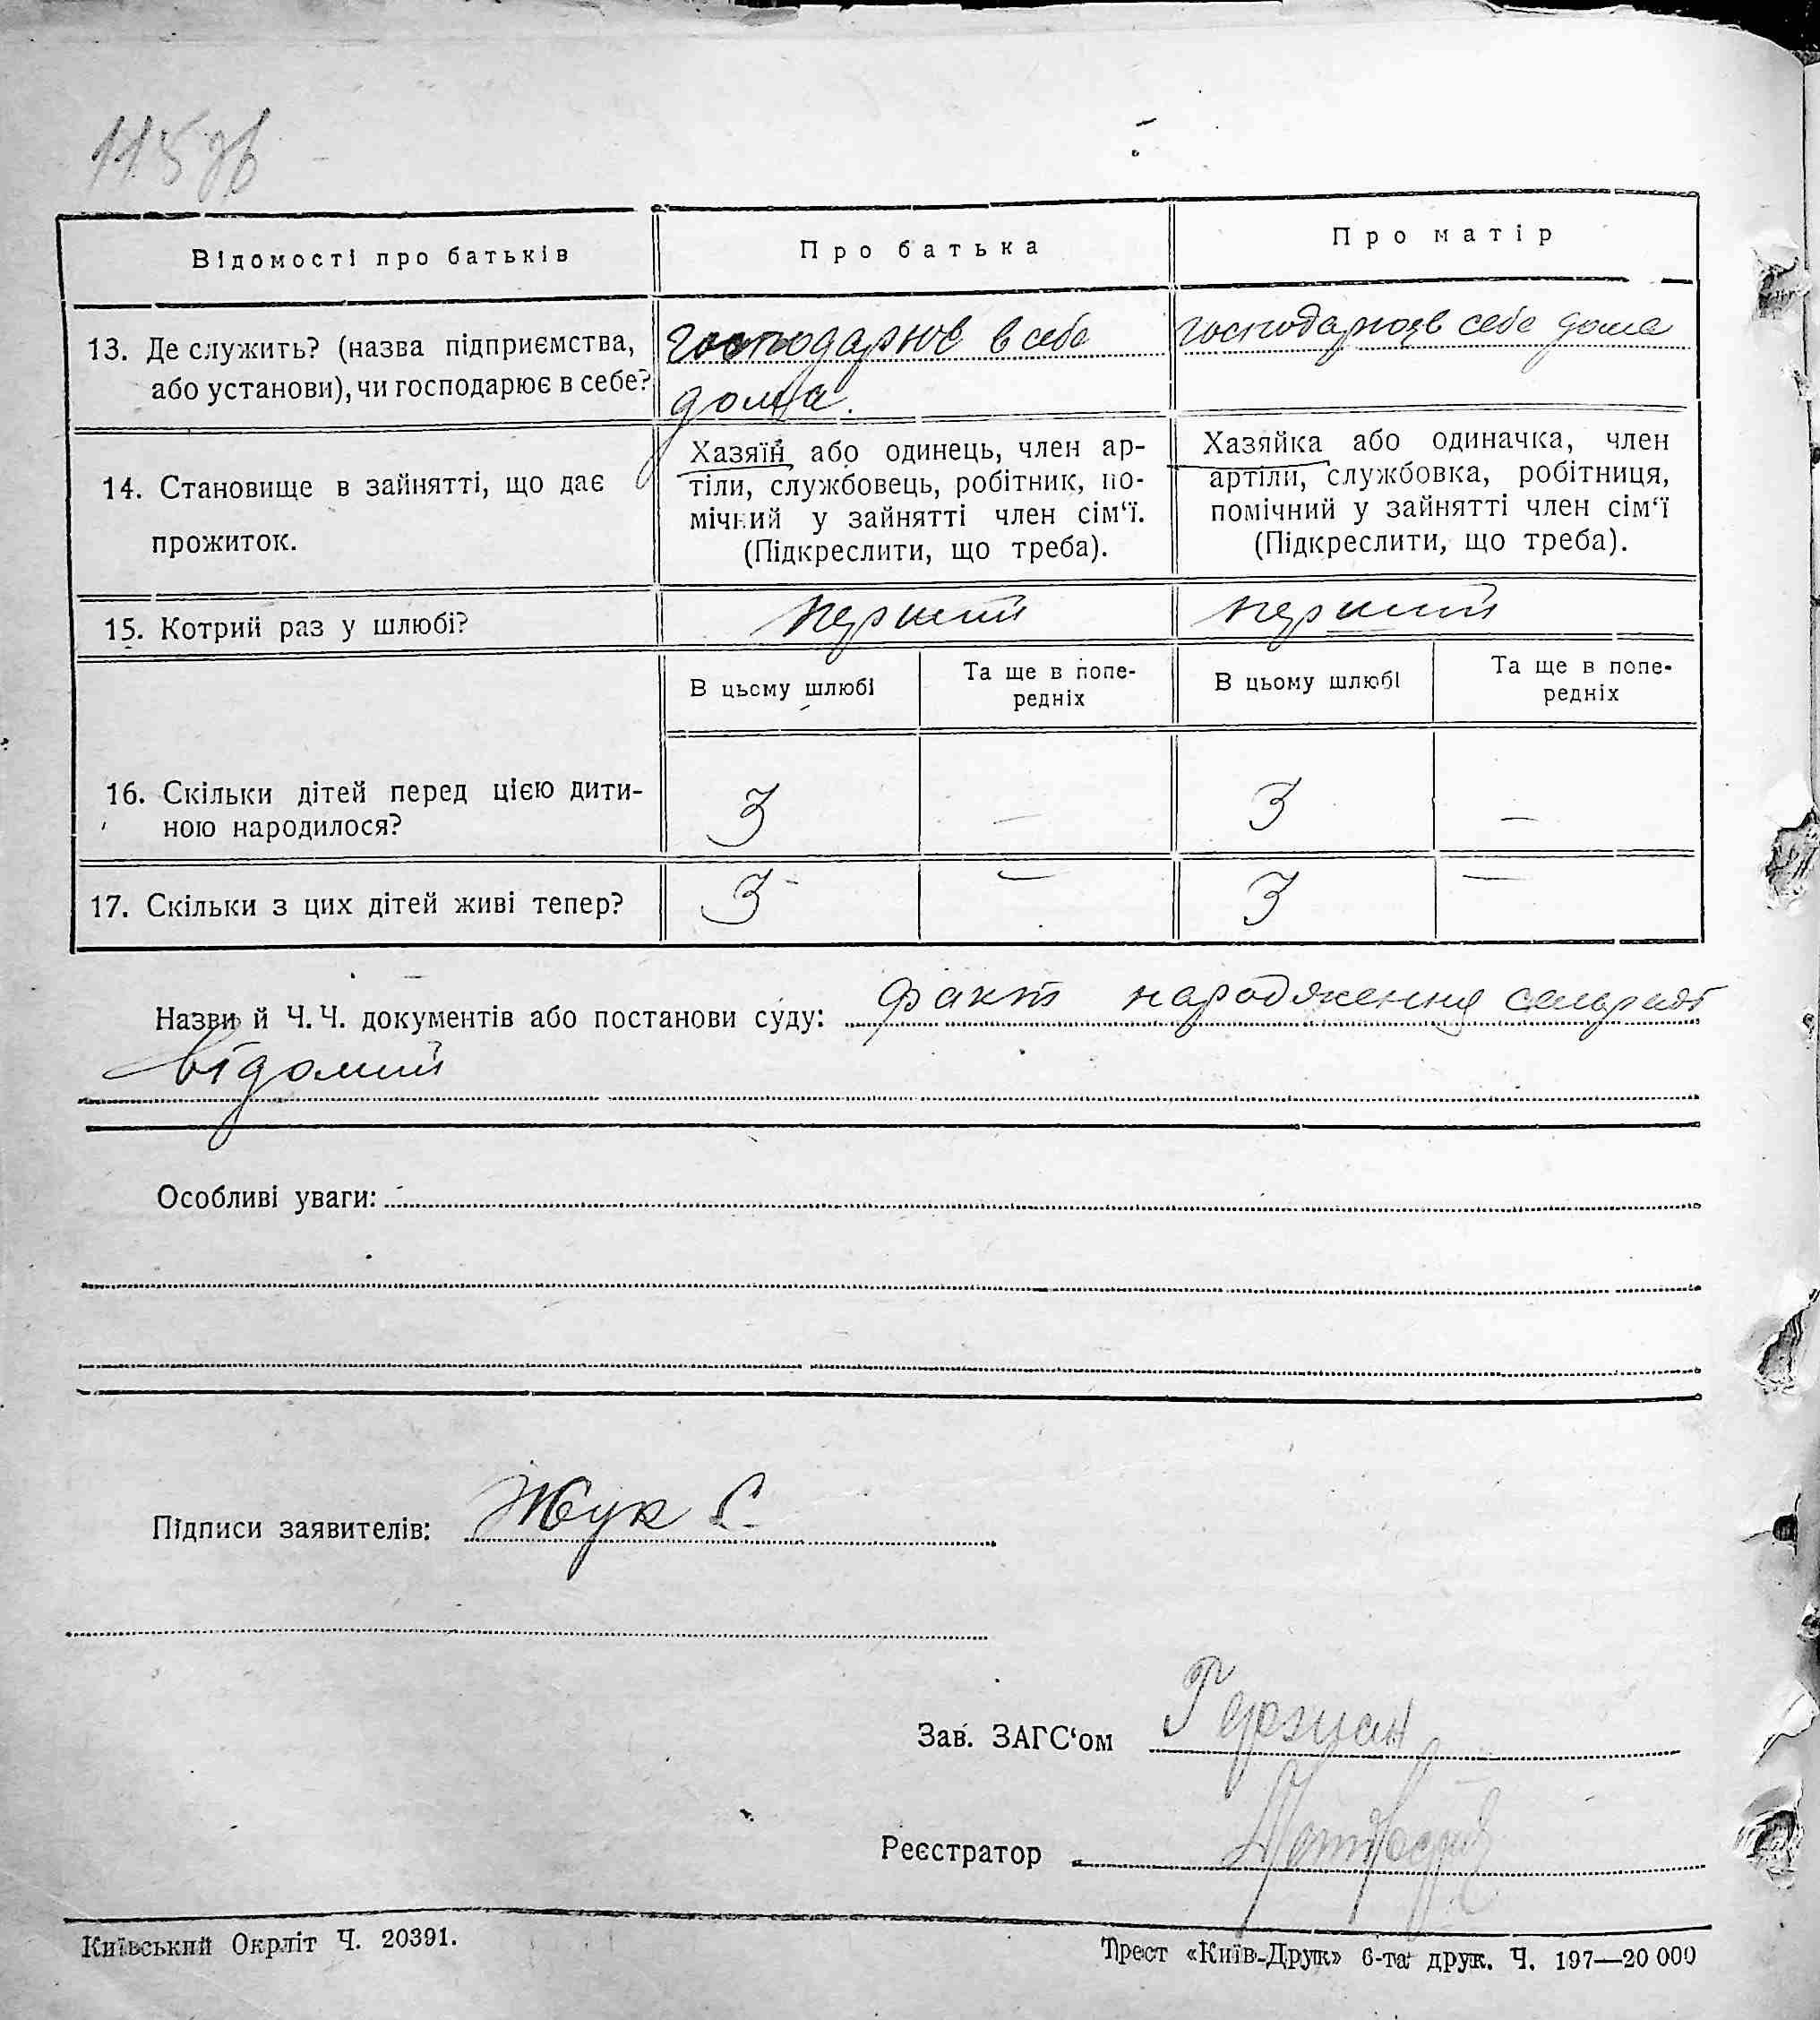 115 зв
Відомості про батьків
Про батька
Про матір
13. Де служить? (назва підприємства,
або установи), чи господарює в себе?
господарює в себе
дома.
господарює в себе дома
14. Становище в зайнятті, що дає
прожиток.
Хазяїн або одинець, член ар-
тіли, службовець, робітник, по-
мічний у зайнятті член сім‘ї.
(Підкреслити, що треба).
Хазяйка або одиначка, член
артіли, службовка, робітниця,
помічний у зайнятті член сім‘ї
(Підкреслити, що треба).
15. Котрий раз у шлюбі?
перший
перший
В цьому шлюбі
Та ще в попе-
редніх
В цьому шлюбі
Та ще в попе-
редніх
16. Скільки дітей перед цією дити-
ною народилося?
3 — 3 —
17. Скільки з цих дітей живі тепер?
3 — 3 —
Назви й Ч. Ч. документів або постанови суду: факт народження сельраді
відомий
Особливі уваги:
Підписи заявителів: Жук С.
Зав. ЗАГС‘ом
Реєстратор
Київський Окрліт Ч. 20391.
Трест «Київ-Друк» 6-та друк. Ч. 197—20 000